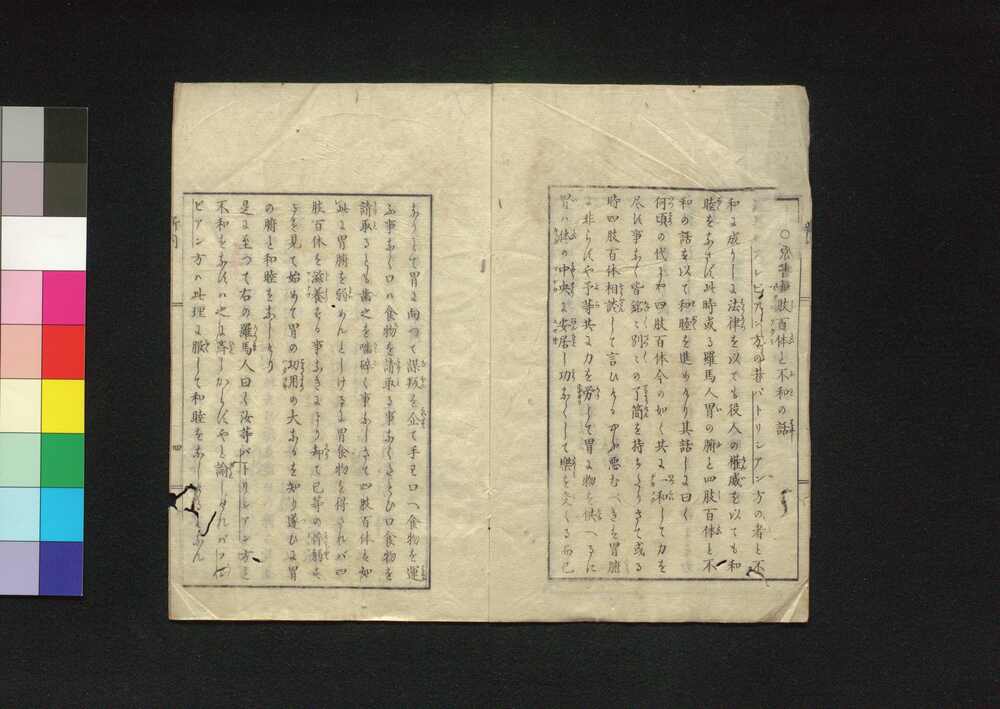 肢百体と不和の話
プレビアン方の昔パトリシアン方の者と不
和に成りしに法律を以ても役人の権威を以ても和
睦をなさす此時或る羅馬人胃の腑と四肢百体と不
和の話を以て和睦を進めたり其話しに曰く
何頃の代にや四肢百体今の如く共に一和して力を
尽す事なく皆銘々別々の了簡を持ちたりさて或る
時四肢百体相談して言ひけるは悪むべきは胃腑
に非らすや予等共に力を労して胃に物を供へるに
胃ハ体の中央に安居し功なくして楽を受くる而已
なりとて胃に向つて謀叛を企て手ハ口へ食物を運
ふ事なく口ハ食物を請取る事なくたとひ口食物を
請取るとも歯之を噛砕く事なしさて四肢百体如
此に胃腑を弱めんとしけるに胃食物を得されバ四
肢百体を滋養する事なきにより却て已等の
を見て始めて胃の功用の大なるを知り遂ひに胃
の腑と和睦をなしたり
是に至つて右の羅馬人曰く汝等パトリシアン方と
不和をなすハ之に斉しからすやと諭しけれバプレ
ビアン方ハ此理に服して和睦をなし
四